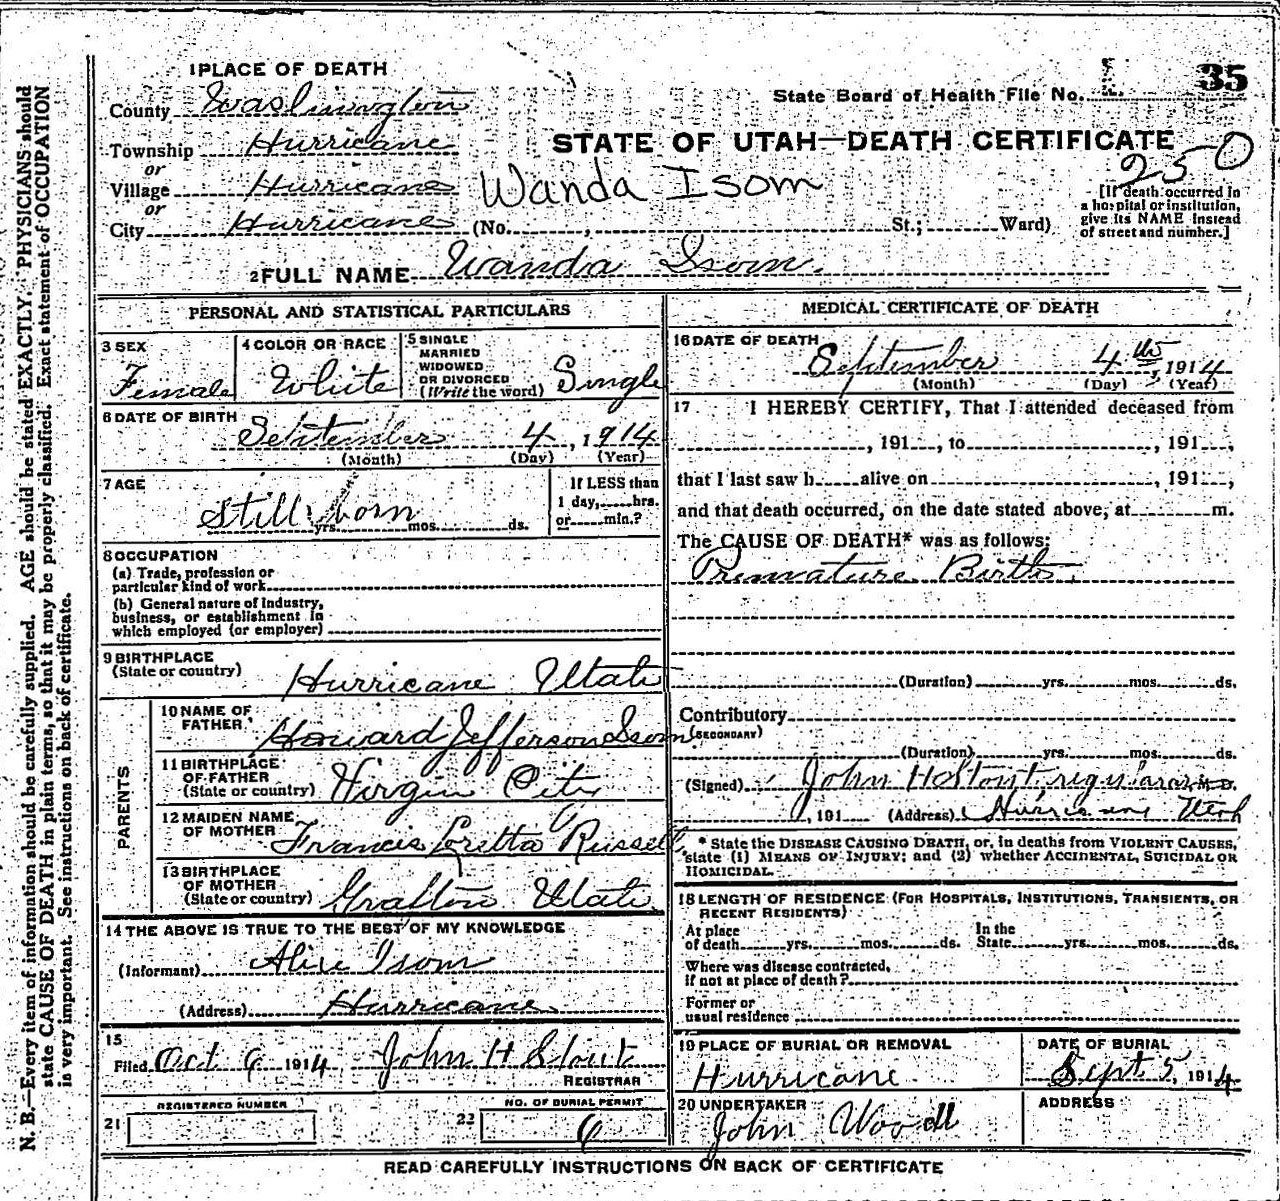 1 PLACE OF DEATH
County Washington
Township Hurricane
or
Village Hurricane
or
City Hurricane (No. , St.; Ward)
State Board of Health File No. 35
STATE OF UTAH—DEATH CERTIFICATE
250
Wanda Isom
[If death occurred in
a hospital or institution,
give its NAME instead
of street and number.]
2 FULL NAME Wanda Isom.
PERSONAL AND STATISTICAL PARTICULARS
3 SEX
Female
4 COLOR OR RACE
White
5 SINGLE
MARRIED
WIDOWED
OR DIVORCED
(Write the word) Single
6 DATE OF BIRTH
September 4, 1914
(Month) (Day) (Year)
7 AGE
Still born
yrs. mos. ds.
If LESS than
1 day, hrs.
or min.?
8 OCCUPATION
(a) Trade, profession or
particular kind of work
(b) General nature of industry,
business, or establishment in
which employed (or employer)
9 BIRTHPLACE
(State or country) Hurricane Utah
PARENTS
10 NAME OF
FATHER Howard Jefferson Isom
11 BIRTHPLACE
OF FATHER
(State or country) Virgin City
12 MAIDEN NAME
OF MOTHER Francis Loretta Russell
13 BIRTHPLACE
OF MOTHER
(State or country) Grafton Utah
14 THE ABOVE IS TRUE TO THE BEST OF MY KNOWLEDGE
(Informant) Alice Isom
(Address) Hurricane
15
Filed Oct 6 1914 John H Stout
REGISTRAR
21 REGISTERED NUMBER
22 NO. OF BURIAL PERMIT
6
MEDICAL CERTIFICATE OF DEATH
16 DATE OF DEATH
September 4th, 1914
(Month) (Day) (Year)
17 I HEREBY CERTIFY, That I attended deceased from
, 191 , to , 191 ,
that I last saw h alive on , 191 ,
and that death occurred, on the date stated above, at m.
The CAUSE OF DEATH* was as follows:
Premature Birth.
(Duration) yrs. mos. ds.
Contributory
(SECONDARY)
(Duration) yrs. mos. ds.
(Signed) John H Stout, registrar, M.D.
, 191 (Address) Hurricane Utah
* State the DISEASE CAUSING DEATH, or, in deaths from VIOLENT CAUSES,
state (1) MEANS OF INJURY; and (2) whether ACCIDENTAL, SUICIDAL OR
HOMICIDAL.
18 LENGTH OF RESIDENCE (FOR HOSPITALS, INSTITUTIONS, TRANSIENTS, OR
RECENT RESIDENTS)
At place
of death yrs. mos. ds.
In the
State yrs. mos. ds.
Where was disease contracted,
if not at place of death?
Former or
usual residence
19 PLACE OF BURIAL OR REMOVAL
Hurricane
DATE OF BURIAL
Sept 5, 1914
20 UNDERTAKER
John Wood
ADDRESS
READ CAREFULLY INSTRUCTIONS ON BACK OF CERTIFICATE
N. B.—Every item of information should be carefully supplied. AGE should be stated EXACTLY. PHYSICIANS should
state CAUSE OF DEATH in plain terms, so that it may be properly classified. Exact statement of OCCUPATION
is very important. See instructions on back of certificate.